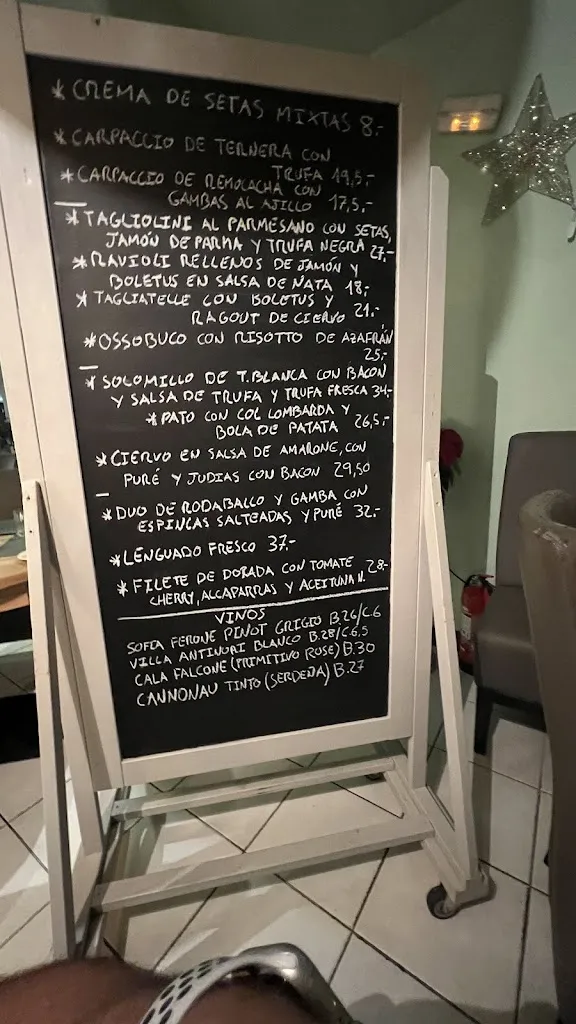 * CREMA DE SETAS MIXTAS 8.-
* CARPACCIO DE TERNERA CON
TRUFA 19,5.-
* CARPACCIO DE REMOLACHA CON
GAMBAS AL AJILLO 17,5.-
* TAGLIOLINI AL PARMESANO CON SETAS,
JAMÓN DE PARMA Y TRUFA NEGRA 27,-
* RAVIOLI RELLENOS DE JAMÓN Y
BOLETUS EN SALSA DE NATA 18,-
* TAGLIATELLE CON BOLETUS Y
RAGOUT DE CIERVO 21.-
* OSSOBUCO CON RISOTTO DE AZAFRÁN
25.-
* SOLOMILLO DE T.BLANCA CON BACON
Y SALSA DE TRUFA Y TRUFA FRESCA 34,-
* PATO CON COL LOMBARDA Y
BOLA DE PATATA 26,5.-
* CIERVO EN SALSA DE AMARONE, CON
PURÉ Y JUDIAS CON BACON 29,50
* DUO DE RODABALLO Y GAMBA CON
ESPINCAS SALTEADAS Y PURÉ 32.-
* LENGUADO FRESCO 37.-
* FILETE DE DORADA CON TOMATE 28.-
CHERRY, ALCAPARRAS Y ACEITUNA N.
VINOS
SOFIA FERONE PINOT GRIGIO B.26/C.6
VILLA ANTINORI BLANCO B.28/C.6,5
CALA FALCONE (PRIMITIVO ROSE) B.30
CANNONAU TINTO (SERDEÑA) B.27